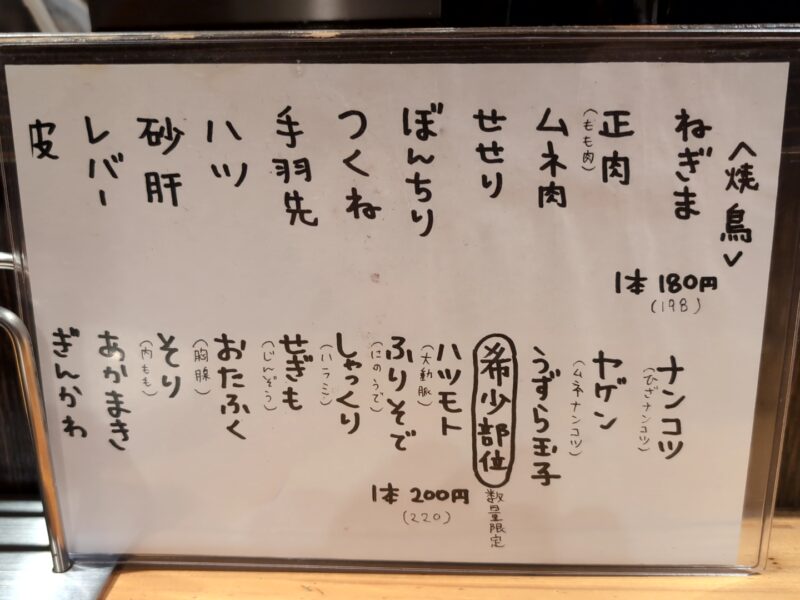 <焼鳥>
ねぎま
正肉
(もも肉)
ムネ肉
せせり
ぼんちり
つくね
手羽先
ハツ
砂肝
レバー
皮
1本 180円
(198)
ナンコツ
(ひざナンコツ)
ヤゲン
(ムネナンコツ)
うずら玉子
希少部位
数量限定
1本 200円
(220)
ハツモト
(大動脈)
ふりそで
(にのうで)
しゃっくり
(ハラミ)
せぎも
(じんぞう)
おたふく
(胸腺)
そり
(内もも)
あかまき
ぎんかわ